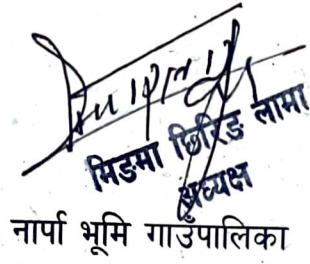 मिङमा छिरिङ लामा
अध्यक्ष
नार्पा भूमि गाउँपालिका